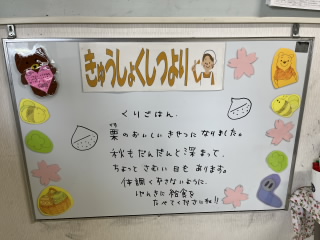 きゅうしょくしつより
くりごはん
栗のおいしいきせつになりました。
秋もだんだんと深まって、
ちょっとさむい日もあります。
体調くずさないように、
げんきに給食を
たべてくださいね!!